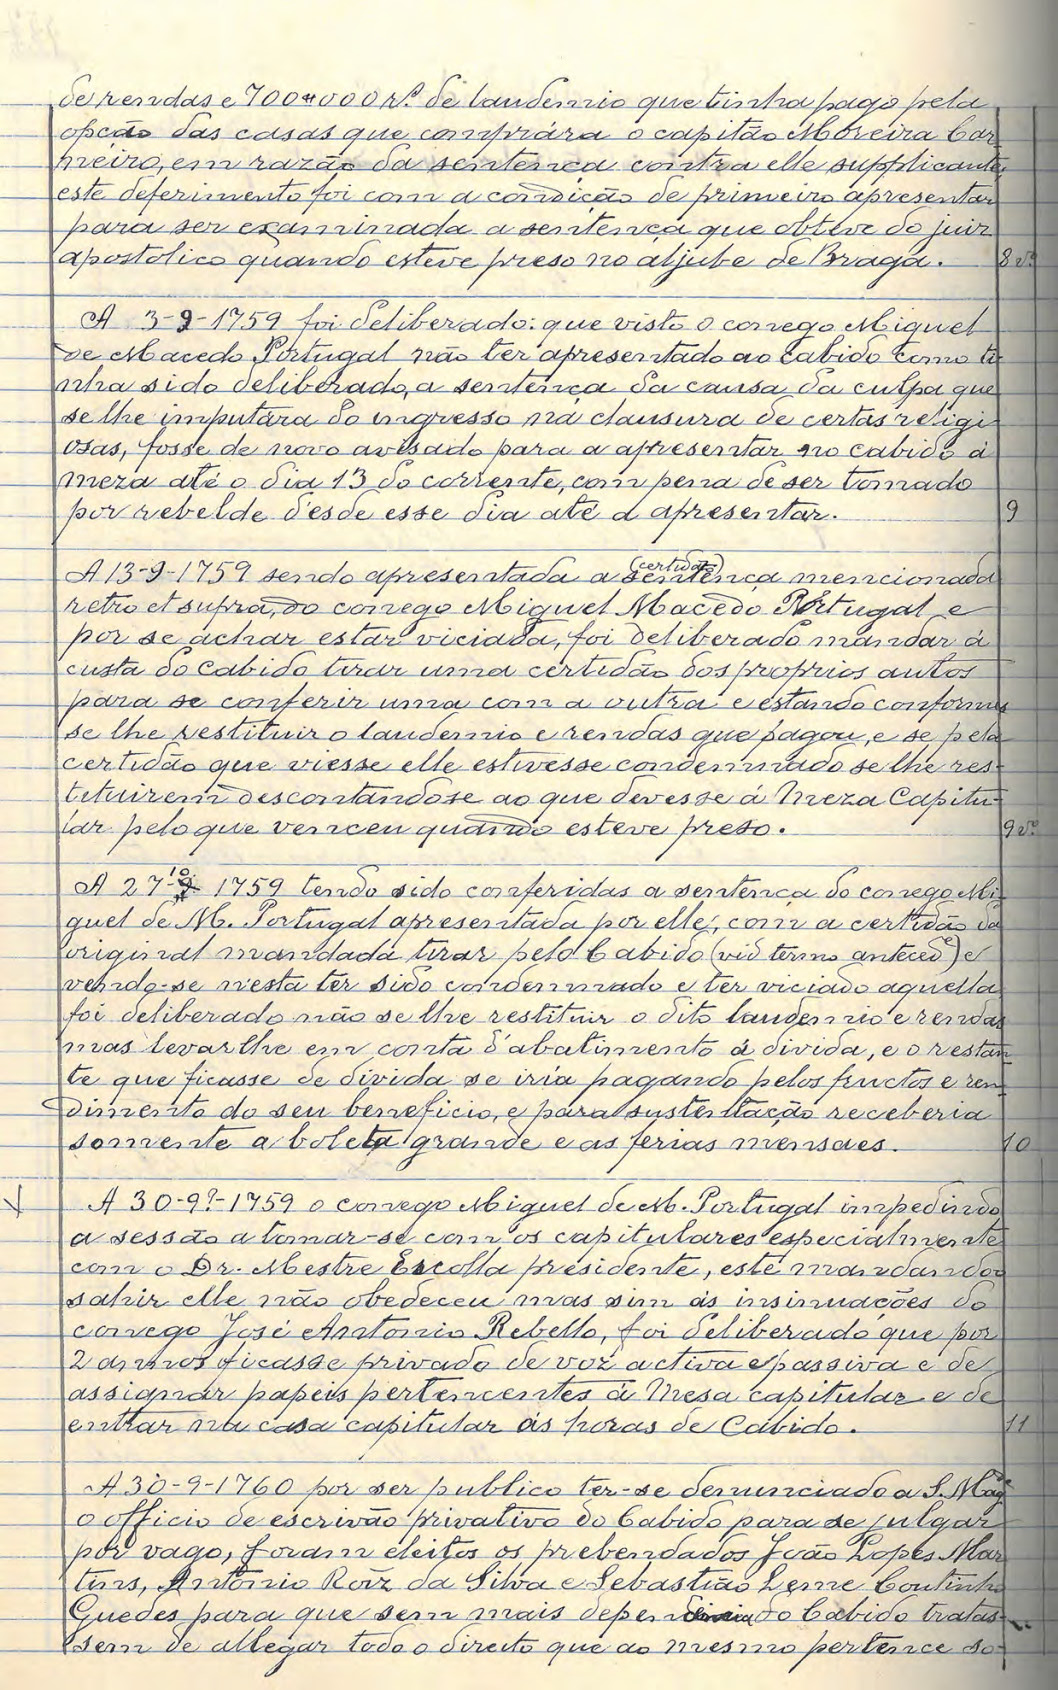 de rendas e 700#000 rs. de laudemio que tinha pago pela
opção das casas que comprára o capitão Moreira Car
neiro, em razão da sentença contra elle supplicante,
este deferimento foi com a condição de primeiro apresentar
para ser examinada a sentença que obteve do juiz
apostolico quando esteve preso no aljube de Braga. 8 vº
A 3-9-1759 foi deliberado: que visto o conego Miguel
de Macedo Portugal não ter apresentado ao cabido como ti
nha sido deliberado, a sentença da causa da culpa que
se lhe imputára do ingresso na clausura de certas religi
osas, fosse de novo avisado para a apresentar no cabido á
meza até o dia 13 do corrente, com pena de ser tomado
por rebelde desde esse dia até a apresentar. 9
A 13-9-1759 sendo apresentada a sentença (certidão) mencionada
retro et supra, do conego Miguel Macedo Portugal e
por se achar estar viciada, foi deliberado mandar á
custa do Cabido tirar uma certidão dos proprios autos
para se conferir uma com a outra e estando conformes
se lhe restituir o laudemio e rendas que pagou, e se pela
certidão que viesse elle estivesse condemnado se lhe res-
tituirem descontando-se ao que devesse á Meza Capitu-
lar pelo que venceu quando esteve preso. 9 vº
A 27-10-1759 tendo sido conferidas a sentença do conego Mi-
guel de M. Portugal apresentada por elle, com a certidão da
original mandada tirar pelo Cabido (vid termo antecede) e
vendo-se nesta ter sido condemnado e ter viciado aquella
foi deliberado não se lhe restituir o dito laudemio e rendas
mas levar lhe em conta d'abatimento á divida, e o restan
te que ficasse de divida se iria pagando pelos fructos e ren-
dimento do seu beneficio, e para sustentação receberia
somente a boleta grande e as ferias mensaes. 10
A 30-9?-1759 o conego Miguel de M. Portugal impedindo
a sessão a tomar-se com os capitulares especialmente
com o Dr. Mestre Escolla presidente, este mandando-o
sahir elle não obedeceu mas sim ás insinuações do
conego José Antonio Rebello, foi deliberado que por
2 annos ficasse privado de voz activa e passiva e de
assignar papeis pertencentes á Mesa capitular e de
entrar na casa capitular ás horas de Cabido. 11
A 30-9-1760 por ser publico ter-se denunciado a S. Mag
o officio de escrivão privativo do Cabido para se julgar
por vago, foram eleitos os prebendados João Lopes Mar
tins, Antonio Roiz da Silva e Sebastião Leme Coutinho
Guedes para que sem mais dependencia do Cabido tratas-
sem de allegar todo o direito que ao mesmo pertence so-